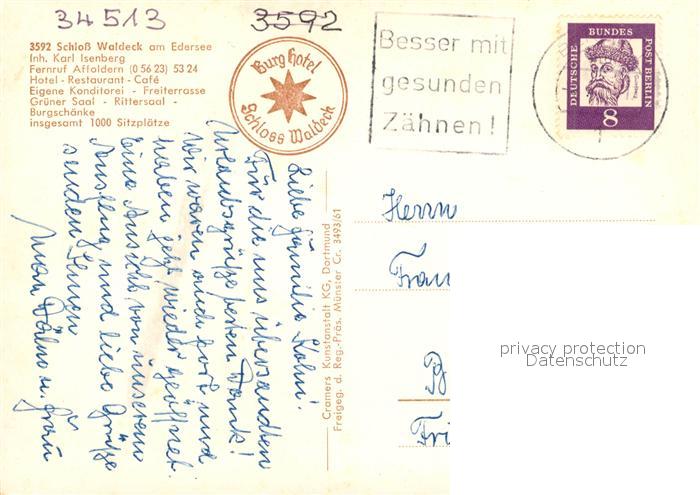 34513
3592
3592 Schloß Waldeck am Edersee
Inh. Karl Isenberg
Fernruf Affoldern (0 56 23) 53 24
Hotel - Restaurant - Café
Eigene Konditorei - Freiterrasse
Grüner Saal - Rittersaal -
Burgschänke
insgesamt 1000 Sitzplätze
Burg Hotel
Schloss Waldeck
Besser mit
gesunden
Zähnen!
DEUTSCHE BUNDES POST BERLIN
8
Liebe Familie Kohn!
Für die uns übersandten
Urlaubsgrüße besten Dank!
Wir waren auch fort und
haben jetzt wieder geöffnet.
Eine Ansicht von unserem
Ausflug und liebe Grüße
senden Ihnen
Max u. Frau
Cramers Kunstanstalt KG, Dortmund
Freigeg. d. Reg.-Präs. Münster Cr. 3493/61
Herrn
Fran
Fri
privacy protection
Datenschutz